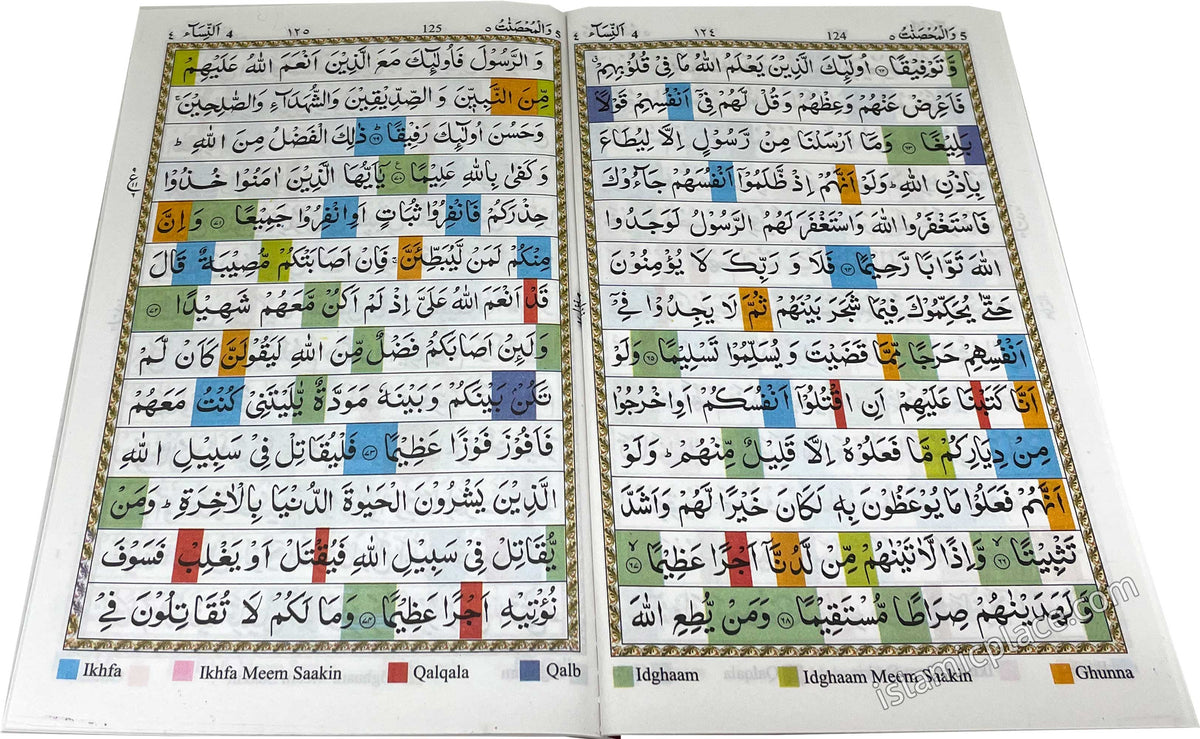 وَالْمُحْصَنٰتُ ٥ 5 124 ١٢٤ اَلنِّسَآء 4 ٤
وَّتَوْفِيْقًا ۝٦٢ اُولٰٓئِكَ الَّذِيْنَ يَعْلَمُ اللّٰهُ مَا فِيْ قُلُوْبِهِمْ ۗ
فَاَعْرِضْ عَنْهُمْ وَعِظْهُمْ وَقُلْ لَّهُمْ فِيْٓ اَنْفُسِهِمْ قَوْلًاۢ
بَلِيْغًا ۝٦٣ وَمَآ اَرْسَلْنَا مِنْ رَّسُوْلٍ اِلَّا لِيُطَاعَ
بِاِذْنِ اللّٰهِ ؕ وَلَوْ اَنَّهُمْ اِذْ ظَّلَمُوْٓا اَنْفُسَهُمْ جَآءُوْكَ
فَاسْتَغْفَرُوا اللّٰهَ وَاسْتَغْفَرَ لَهُمُ الرَّسُوْلُ لَوَجَدُوا
اللّٰهَ تَوَّابًا رَّحِيْمًا ۝٦٤ فَلَا وَ رَبِّكَ لَا يُؤْمِنُوْنَ
حَتّٰى يُحَكِّمُوْكَ فِيْمَا شَجَرَ بَيْنَهُمْ ثُمَّ لَا يَجِدُوْا فِيْٓ
اَنْفُسِهِمْ حَرَجًا مِّمَّا قَضَيْتَ وَ يُسَلِّمُوْا تَسْلِيْمًا ۝٦٥ وَلَوْ
اَنَّا كَتَبْنَا عَلَيْهِمْ اَنِ اقْتُلُوْٓا اَنْفُسَكُمْ اَوِ اخْرُجُوْا
مِنْ دِيَارِكُمْ مَّا فَعَلُوْهُ اِلَّا قَلِيْلٌ مِّنْهُمْ ؕ وَلَوْ
اَنَّهُمْ فَعَلُوْا مَا يُوْعَظُوْنَ بِهٖ لَكَانَ خَيْرًا لَّهُمْ وَاَشَدَّ
تَثْبِيْتًا ۝٦٦ وَّاِذًا لَّاٰتَيْنٰهُمْ مِّنْ لَّدُنَّآ اَجْرًا عَظِيْمًا ۝٦٧
وَّلَهَدَيْنٰهُمْ صِرَاطًا مُّسْتَقِيْمًا ۝٦٨ وَمَنْ يُّطِعِ اللّٰهَ
Idghaam Idghaam Meem Saakin Ghunna
وَالْمُحْصَنٰتُ ٥ 5 125 ١٢٥ اَلنِّسَآء 4 ٤
وَ الرَّسُوْلَ فَاُولٰٓئِكَ مَعَ الَّذِيْنَ اَنْعَمَ اللّٰهُ عَلَيْهِمْ
مِّنَ النَّبِيّٖنَ وَ الصِّدِّيْقِيْنَ وَالشُّهَدَآءِ وَالصّٰلِحِيْنَ ۚ
وَحَسُنَ اُولٰٓئِكَ رَفِيْقًا ؕ ۝٦٩ ذٰلِكَ الْفَضْلُ مِنَ اللّٰهِ ؕ
وَكَفٰى بِاللّٰهِ عَلِيْمًا ۝٧٠ يٰٓاَيُّهَا الَّذِيْنَ اٰمَنُوْا خُذُوْا
حِذْرَكُمْ فَانْفِرُوْا ثُبَاتٍ اَوِ انْفِرُوْا جَمِيْعًا ۝٧١ وَ اِنَّ
مِنْكُمْ لَمَنْ لَّيُبَطِّئَنَّ ۚ فَاِنْ اَصَابَتْكُمْ مُّصِيْبَةٌ قَالَ
قَدْ اَنْعَمَ اللّٰهُ عَلَيَّ اِذْ لَمْ اَكُنْ مَّعَهُمْ شَهِيْدًا ۝٧٢
وَلَئِنْ اَصَابَكُمْ فَضْلٌ مِّنَ اللّٰهِ لَيَقُوْلَنَّ كَاَنْ لَّمْ
تَكُنْۢ بَيْنَكُمْ وَ بَيْنَهٗ مَوَدَّةٌ يّٰلَيْتَنِيْ كُنْتُ مَعَهُمْ
فَاَفُوْزَ فَوْزًا عَظِيْمًا ۝٧٣ فَلْيُقَاتِلْ فِيْ سَبِيْلِ اللّٰهِ
الَّذِيْنَ يَشْرُوْنَ الْحَيٰوةَ الدُّنْيَا بِالْاٰخِرَةِ ؕ وَمَنْ
يُّقَاتِلْ فِيْ سَبِيْلِ اللّٰهِ فَيُقْتَلْ اَوْ يَغْلِبْ فَسَوْفَ
نُؤْتِيْهِ اَجْرًا عَظِيْمًا ۝٧٤ وَمَا لَكُمْ لَا تُقَاتِلُوْنَ فِيْ
Ikhfa Ikhfa Meem Saakin Qalqala Qalb
islamicplace.com